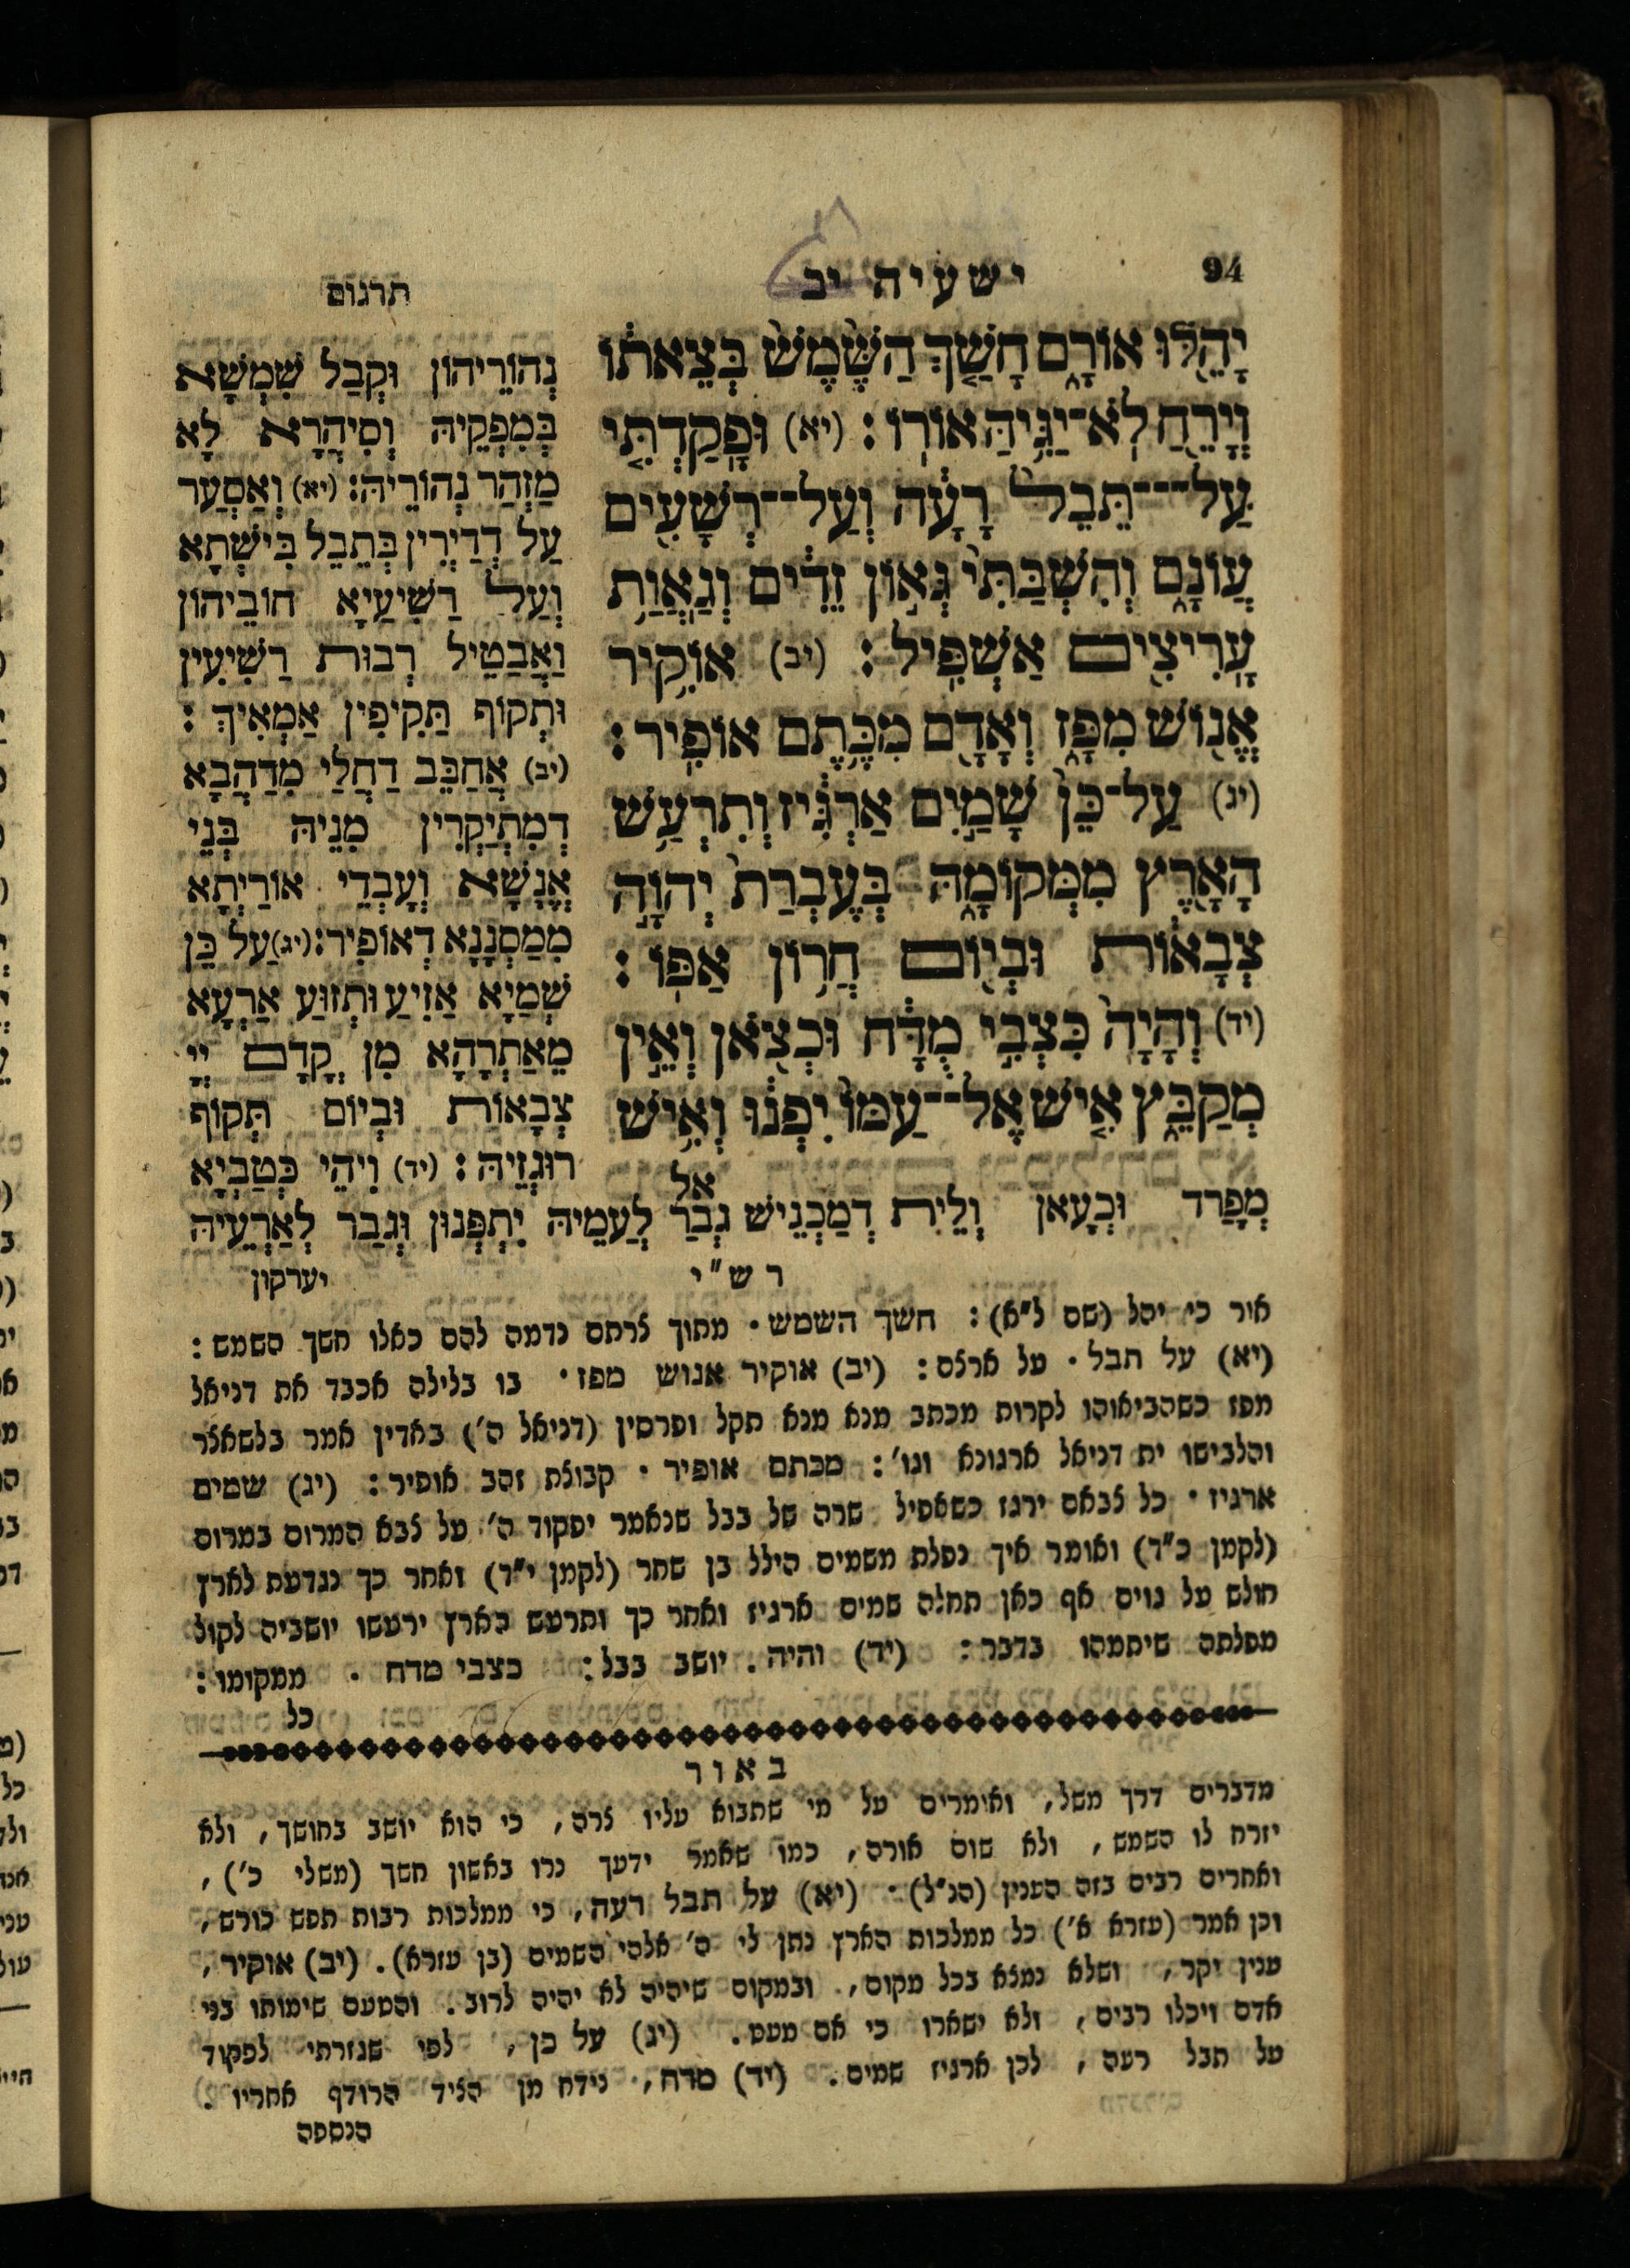 94
ישעיה יב
תרגום
יָהֵ֖לּוּ אוֹרָ֑ם חָשַׁ֤ךְ הַשֶּׁ֙מֶשׁ֙ בְּצֵאת֔וֹ
וְיָרֵ֖חַ לֹֽא־יַגִּ֥יהַּ אוֹרֽוֹ׃ (יא) וּפָֽקַדְתִּ֤י
עַל־־־תֵּבֵל֙ רָעָ֔ה וְעַל־־רְשָׁעִ֖ים
עֲוֹנָ֑ם וְהִשְׁבַּתִּי֙ גְּא֣וֹן זֵדִ֔ים וְגַֽאֲוַ֥ת
עָֽרִיצִ֖ים אַשְׁפִּֽיל׃ (יב) אוֹקִ֥יר
אֱנ֖וֹשׁ מִפָּ֑ז וְאָדָ֖ם מִכֶּ֥תֶם אוֹפִֽיר׃
(יג) עַל־כֵּן֙ שָׁמַ֣יִם אַרְגִּ֔יז וְתִרְעַ֥שׁ
הָאָ֖רֶץ מִמְּקוֹמָ֑הּ בְּעֶבְרַת֙ יְהוָ֣ה
צְבָא֔וֹת וּבְי֖וֹם חֲר֥וֹן אַפּֽוֹ׃
(יד) וְהָיָה֙ כִּצְבִ֣י מֻדָּ֔ח וּכְצֹ֖אן וְאֵ֣ין
מְקַבֵּ֑ץ אִ֤ישׁ אֶל־־עַמּוֹ֙ יִפְנ֔וּ וְאִ֥ישׁ
אל
נְהוֹרֵיהוֹן וּקְבַל שִׁמְשָׁא
בְּמִפְּקֵיהּ וְסִיהֲרָא לָא
מַזְהַר נְהוֹרֵיהּ׃ (יא) וְאַסְעַר
עַל דְּדַיְרִין בְּתֵבֵל בִּישְׁתָא
וְעַל רַשִׁיעַיָא חוֹבֵיהוֹן
וַאֲבַטֵיל רְבוּת רַשִׁיעִין
וּתְקוֹף תַּקִיפִין אַמְאִיךְ׃
(יב) אֲחַבֵּב דַחֲלַי מִדַהֲבָא
דְמִתְיַקְרִין מִנֵיהּ בְּנֵי
אֱנָשָׁא וְעָבְדֵי אוֹרַיְתָא
מִמַסְנָנָא דְאוֹפִיר׃ (יג) עַל כֵּן
שְׁמַיָא אַזִיעַ וּתְזוּעַ אַרְעָא
מֵאַתְרָהָא מִן קֳדָם יְיָ
צְבָאוֹת וּבְיוֹם תְּקוֹף
רוּגְזֵיהּ׃ (יד) וִיהֵי כְּטַבְיָא
מְפָרַד וּכְעָאן וְלֵית דְמַכְנֵישׁ גְבַר לְעַמֵיהּ יִתְפְּנוּן וּגְבַר לְאַרְעֵיהּ
יערקון
רש״י
אור כי יהל (שם ל״א)׃ חשך השמש. מתוך צרתם נדמה להם כאלו חשך השמש׃
(יא) על תבל. על ארצם׃ (יב) אוקיר אנוש מפז. בו בלילה אכבד את דניאל
מפז כשהביאוהו לקרות מכתב מנא מנא תקל ופרסין (דניאל ה׳) באדין אמר בלשאצר
והלבישו ית דניאל ארגונא וגו׳׃ מכתם אופיר. קבוצת זהב אופיר׃ (יג) שמים
ארגיז. כל צבאם ירגז כשאפיל שרה של בבל שנאמר יפקוד ה׳ על צבא המרום במרום
(לקמן כ״ד) ואומר איך נפלת משמים הילל בן שחר (לקמן י״ד) ואחר כך נגדעת לארץ
חולש על גוים אף כאן תחלה שמים ארגיז ואחר כך ותרעש הארץ ירעשו יושביה לקול
מפלתה שיתמהו בדבר׃ (יד) והיה. יושב בבל׃ כצבי מדח. ממקומו׃
כל
באור
מדברים דרך משל, ואומרים על מי שתבוא עליו צרה, כי הוא יושב בחושך, ולא
יזרח לו השמש, ולא שום אורה, כמו שאמר ידעך נרו באשון חשך (משלי כ׳),
ואחרים רבים בזה הענין (הנ״ל). (יא) על תבל רעה, כי ממלכות רבות תפש כורש,
וכן אמר (עזרא א׳) כל ממלכות הארץ נתן לי ה׳ אלהי השמים (בן עזרא). (יב) אוקיר,
ענין יקר, ושלא נמצא בכל מקום, ובמקום שיהיה לא יהיה לרוב. והטעם שימותו בני
אדם ויכלו רבים, ולא ישארו כי אם מעט. (יג) על כן, לפי שגזרתי לפקוד
על תבל רעה, לכן ארגיז שמים. (יד) מדח, נידח מן הציד הרודף אחריו.
הנספה